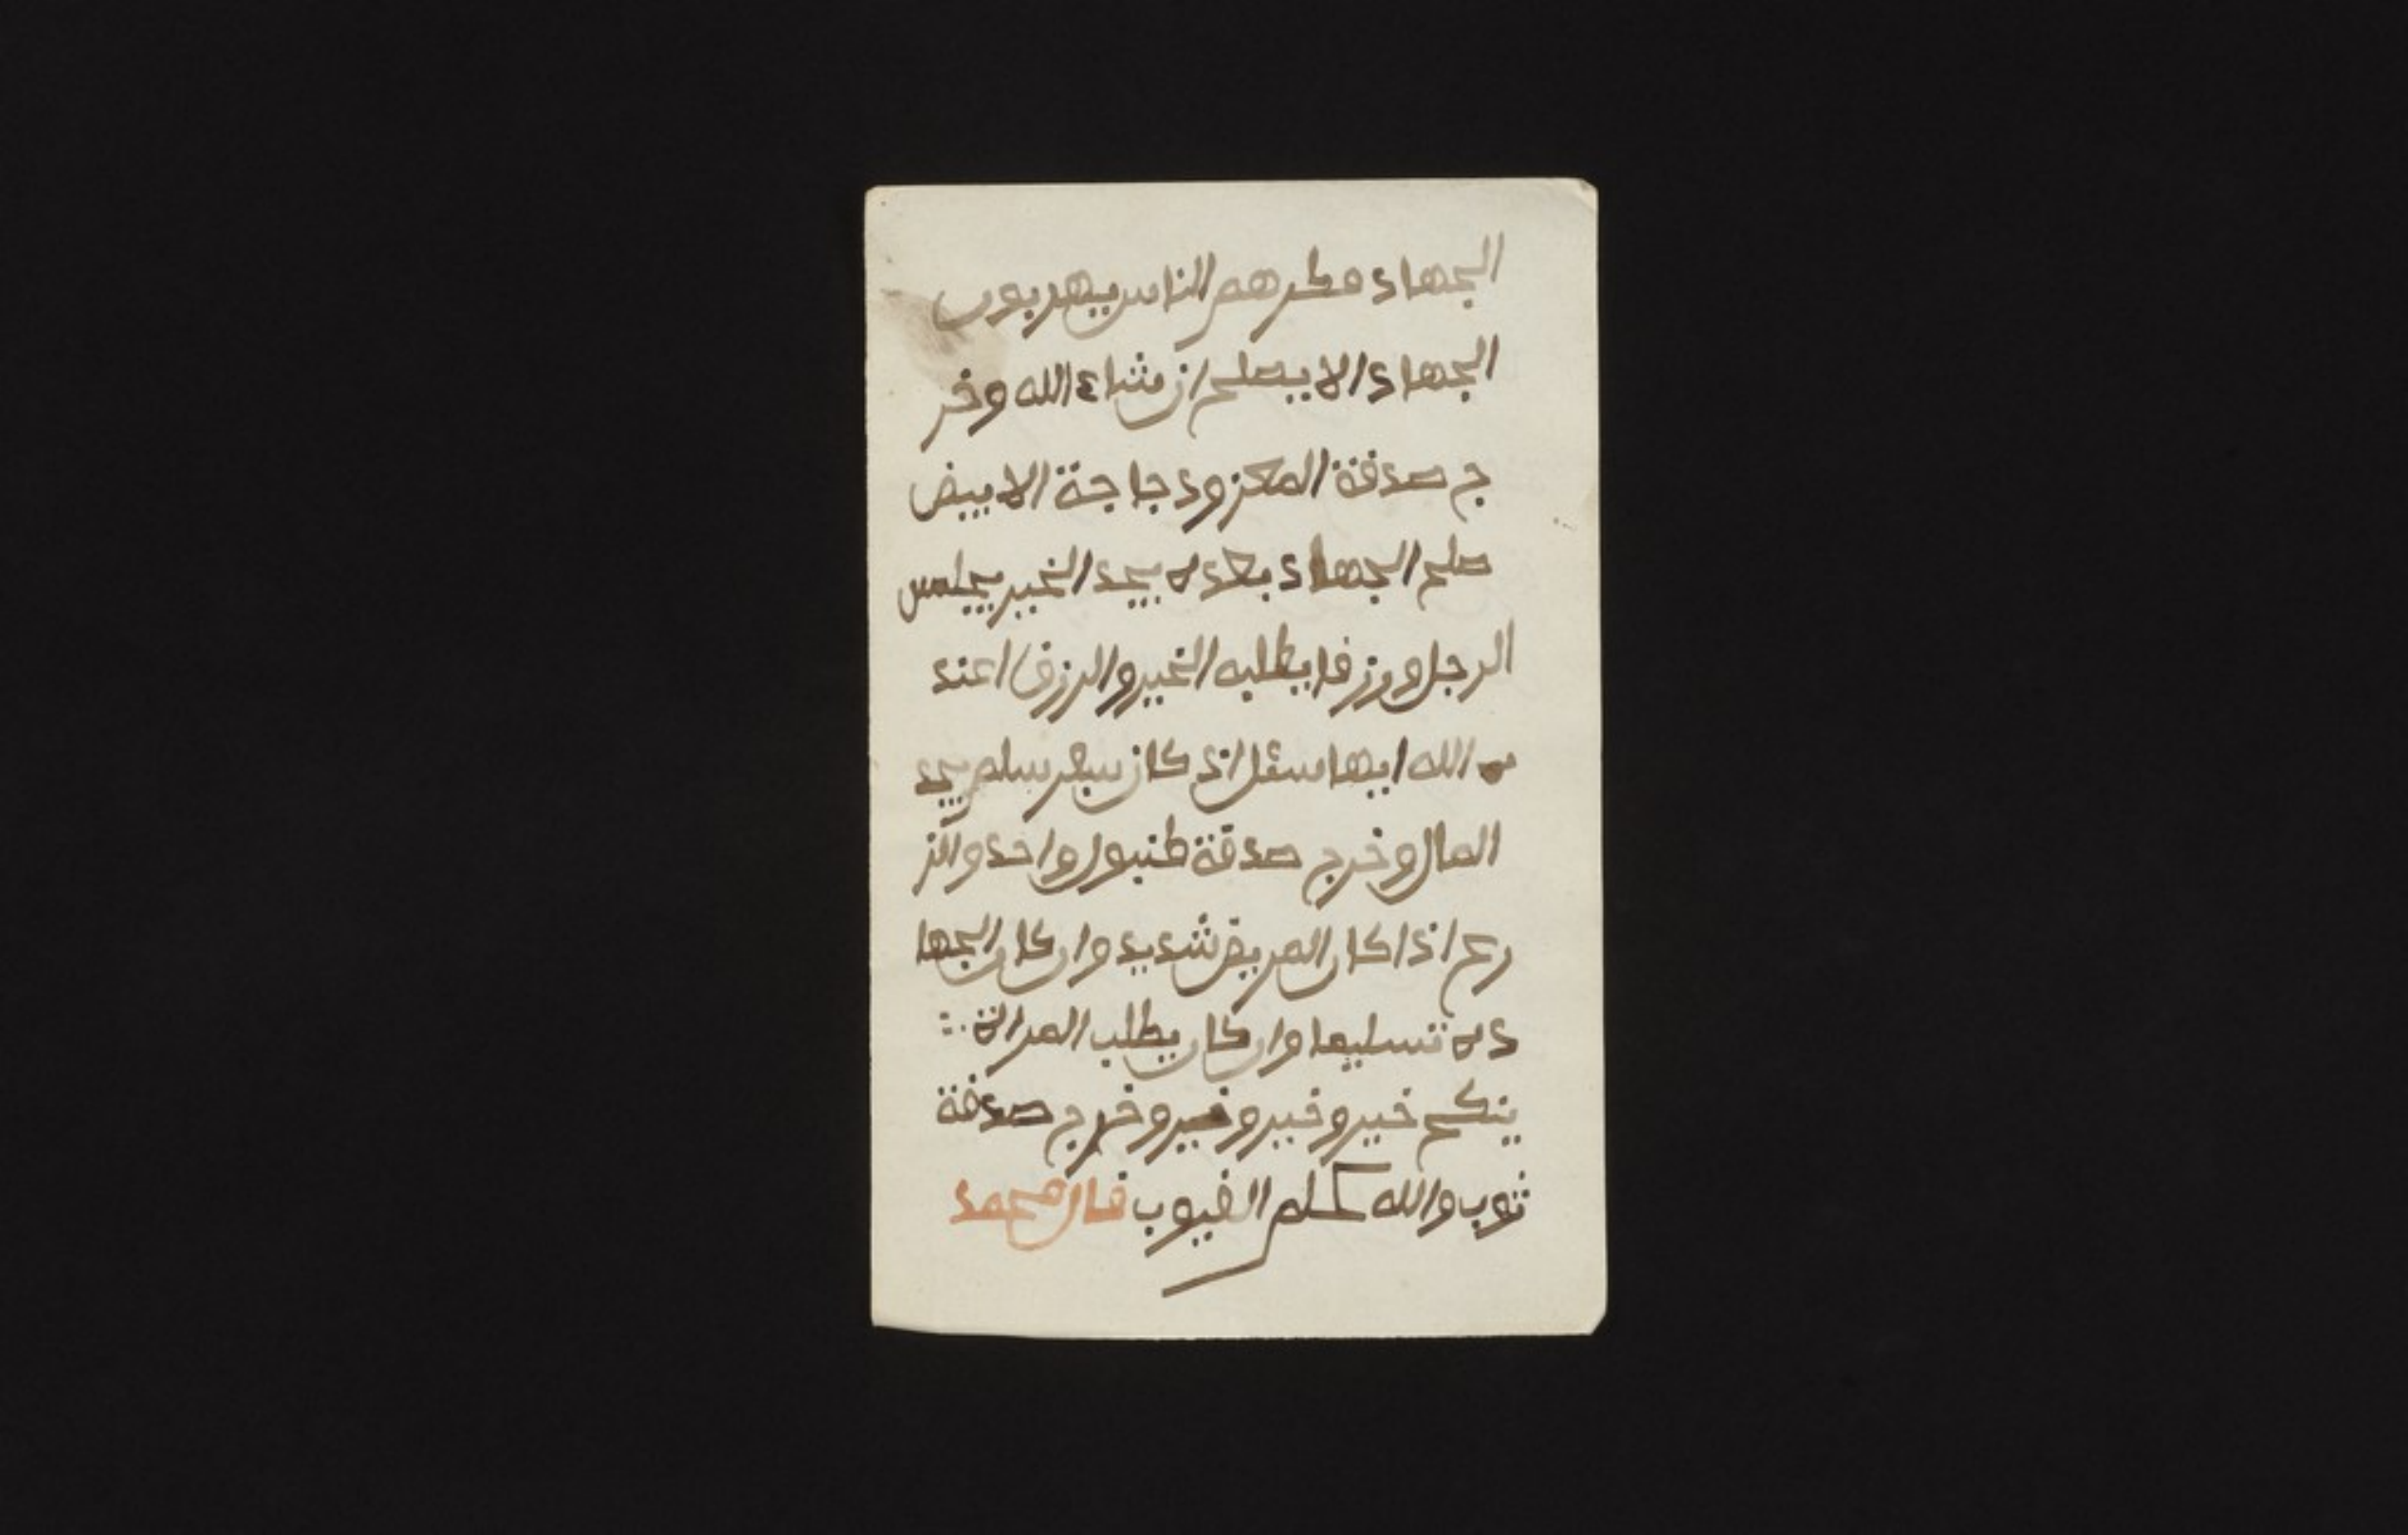 الجهاد مكرهم الناس يهربون
الجهاد الا يصلح ان شاء الله وخر
ج صدقة المعز ودجاجة الابيض
صلح الجهاد بعده يجد الخير يجلس
الرجل ورزقا يطلبه الخير والرزق اعند
الله ايها سئل اذ كان سفر سلم يجد
المال وخرج صدقة طنبور واحد والز
رع اذا كان المريض شديد وان كان الجها
ده تسليما وان كان يطلب المراة
ينكح خير وخير وخير وخرج صدقة
ثوب والله علم الغيوب فال محمد